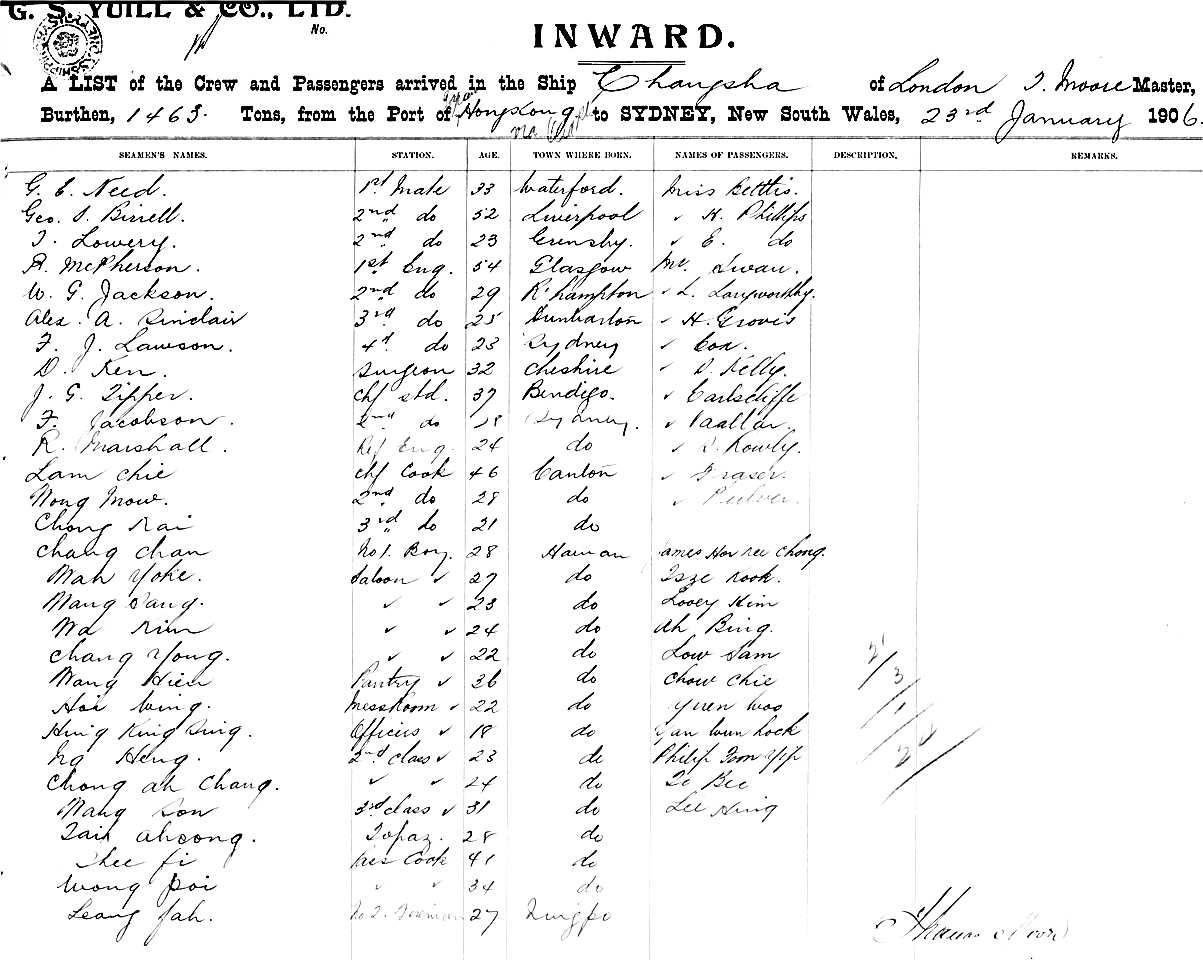 G. S. YUILL & CO., LTD.
No.
INWARD.
A LIST of the Crew and Passengers arrived in the Ship Changsha of London T. Moore Master,
Burthen, 1463. Tons, from the Port of Hong Kong to SYDNEY, New South Wales, 23rd January 1906.
SEAMEN'S NAMES. STATION. AGE. TOWN WHERE BORN. NAMES OF PASSENGERS. DESCRIPTION. REMARKS.
G. E. Need. 1st Mate 33 Waterford. Miss
Geo. S. Birrell. 2nd do 52 Liverpool " H. Phillips
T. Lowery. 2nd do 23 Grimsby. " E. do
R. McPherson. 1st Eng. 54 Glasgow Mr. Swan.
W. G. Jackson. 2nd do 29 R'hampton " L. Langworthy.
Alex. A. Sinclair 3rd do 25 Dunbarton " H.
F. J. Lawson. 4th do 23 Sydney " Cox.
D. Ken. Surgeon 32 Cheshire " Kelly.
J. G. Tipper. Chf Std. 37 Bendigo.
F. Jacobson. 2nd do 18 Sydney.
R. Marshall. Ref Eng. 24 do
Lam Chie Chf Cook 46 Canton " Fraser.
Wong Mow. 2nd do 28 do
Chong Kai 3rd do 21 do
Chang Chan No 1. Boy. 28 Hainan James Chong.
Wah Yoke. Saloon " 27 do Kook.
Wang Sang. " " 23 do Looey Kim
Wa Kim " " 24 do Ah Bing.
Chang Yong. " " 22 do Low Sam
Wang Hien Pantry " 36 do Chow Chie
Hoi Wing. Messroom " 22 do Yuen Woo
Hing King Sing. Officers " 18 do
Ng Heng. 2nd class " 23 do Philip
Chong ah Chang. " " 24 do
Wang Son 3rd class " 31 do Lee Hing
Topaz. 28 do
Cook 41 do
Wong Poi " " 34 do
Leang Jah. No 2. 27 Ningpo
Thomas Moore